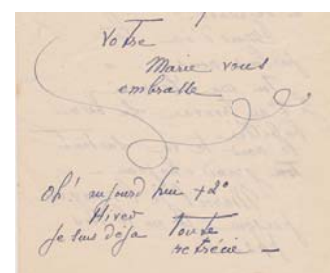 Votre
Marie vous
embrasse
Oh! aujourd'hui +2°
Hiver
je suis déja toute
rétrécie —